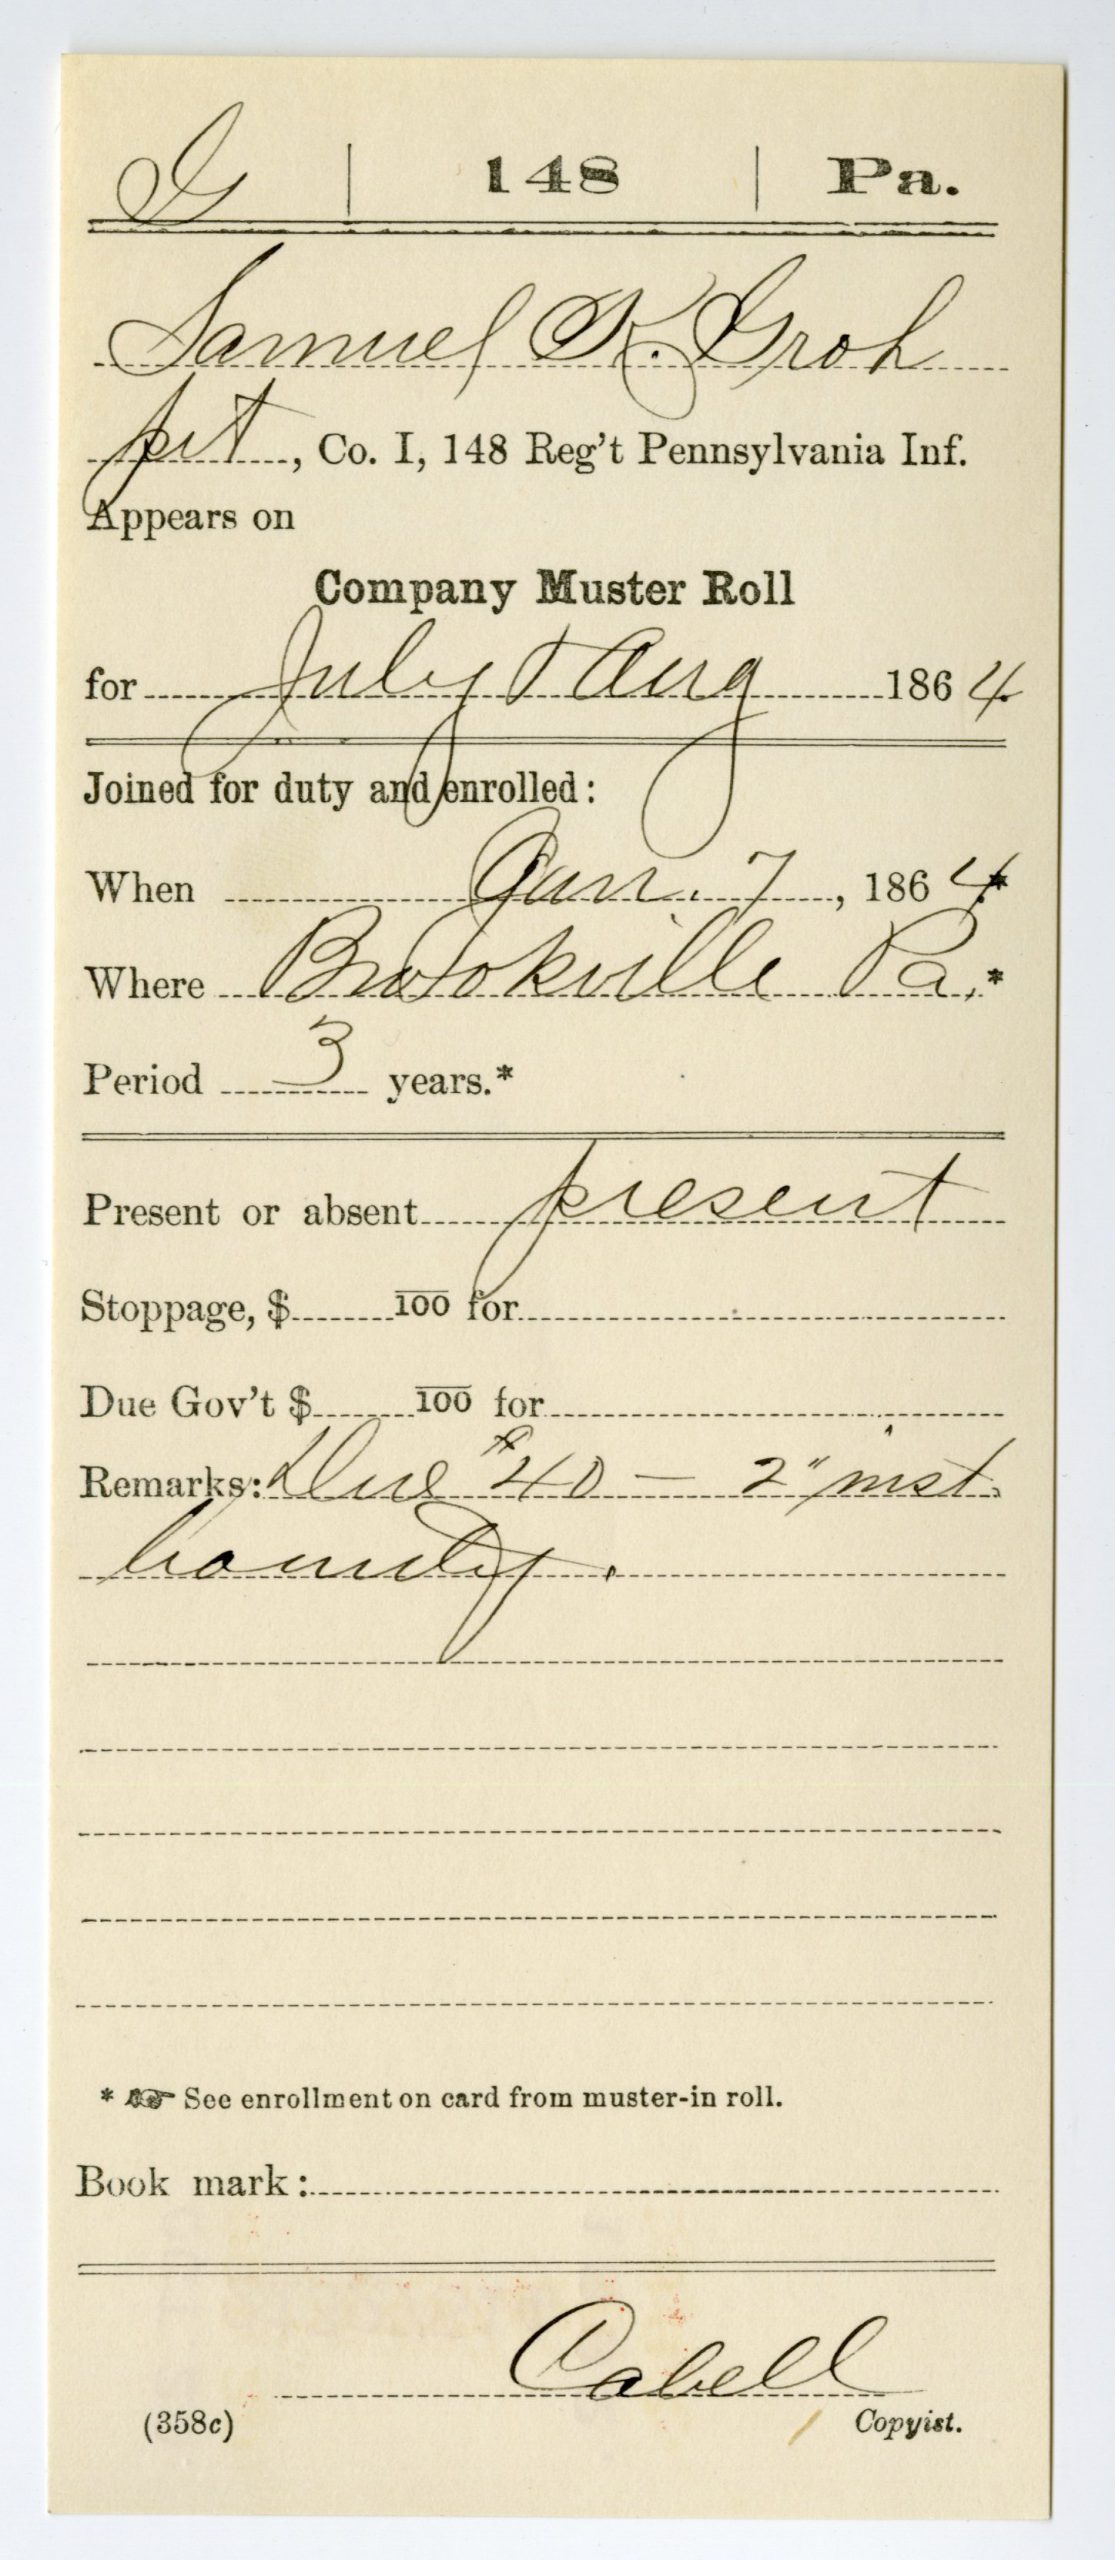 G | 148 | Pa.
Samuel K. Groh
pvt, Co. I, 148 Reg't Pennsylvania Inf.
Appears on
Company Muster Roll
for July & Aug 1864
Joined for duty and enrolled:
When Jan. 7, 1864*
Where Brookville Pa.*
Period 3 years.*
Present or absent present
Stoppage, $ 100 for
Due Gov't $ 100 for
Remarks: Due $40 — 2" inst.
bounty.
* ☞ See enrollment on card from muster-in roll.
Book mark:
Cabell
(358c) Copyist.